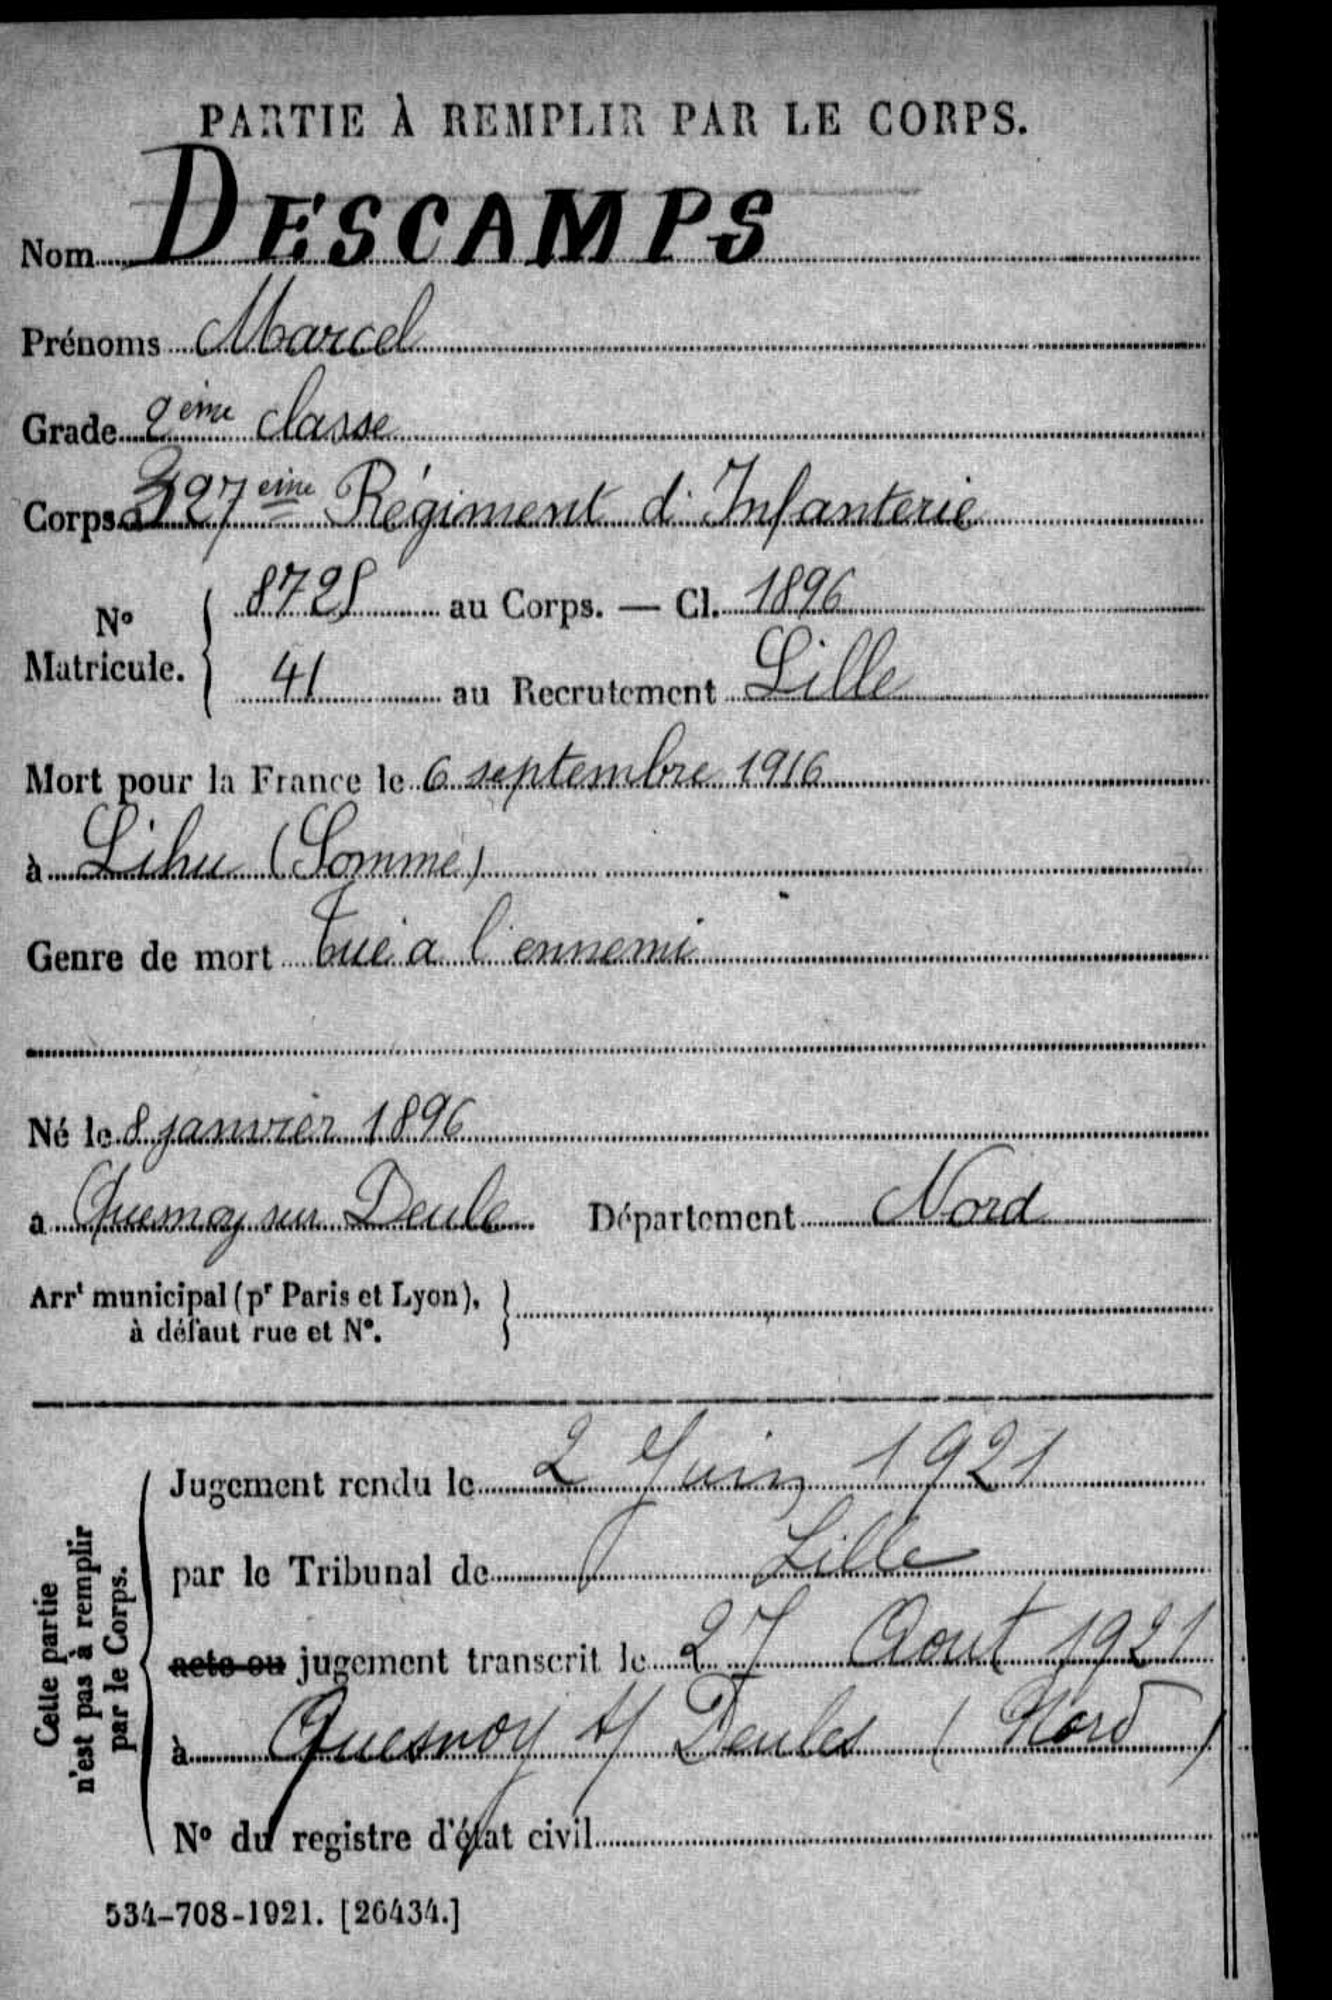 PARTIE À REMPLIR PAR LE CORPS.
Nom DESCAMPS
Prénoms Marcel
Grade 2ème classe
Corps 327ème Régiment d'Infanterie
N° Matricule. 8728 au Corps. — Cl. 1896
41 au Recrutement Lille
Mort pour la France le 6 septembre 1916
à Lihu (Somme)
Genre de mort tué a l'ennemi
Né le 8 janvier 1896
a Quesnoy sur Deule Département Nord
Arrt municipal (pr Paris et Lyon),
à défaut rue et N°.
Cette partie
n'est pas à remplir
par le Corps.
Jugement rendu le 2 Juin 1921
par le Tribunal de Lille
acte ou jugement transcrit le 27 Aout 1921
à Quesnoy s/ Deules (Nord)
N° du registre d'état civil
534-708-1921. [26434.]